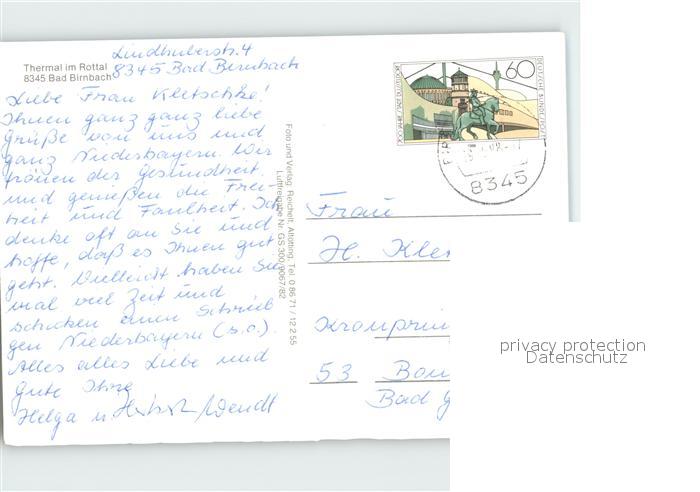 Thermal im Rottal
8345 Bad Birnbach
Lindhuberstr. 4
8345 Bad Birnbach
Liebe Frau Kletschke!
Ihnen ganz ganz liebe
Grüße von uns und
ganz Niederbayern. Wir
frönen der Gesundheit,
und genießen die Frei-
heit und Faulheit. Ich
denke oft an Sie und
hoffe, daß es Ihnen gut
geht. Vielleicht haben Sie
mal viel Zeit und
schicken einen Schrieb
gen Niederbayern (s.o.).
Alles alles Liebe und
Gute Ihre
Helga u. Wendt
Foto und Verlag: Reichelt, Altötting, Tel. 0 86 71 / 12 2 55
Luftfreigabe Nr. GS 300/9067/82
60
DEUTSCHE BUNDESPOST
8345
Frau
H. Kle
Kronprin
53 Bon
Bad G
privacy protection
Datenschutz